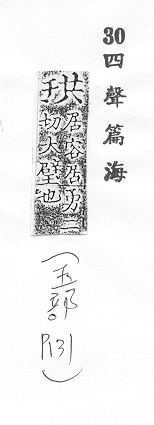 30四聲篇海
珙
居容居勇二
切大璧也
(玉部 P131)